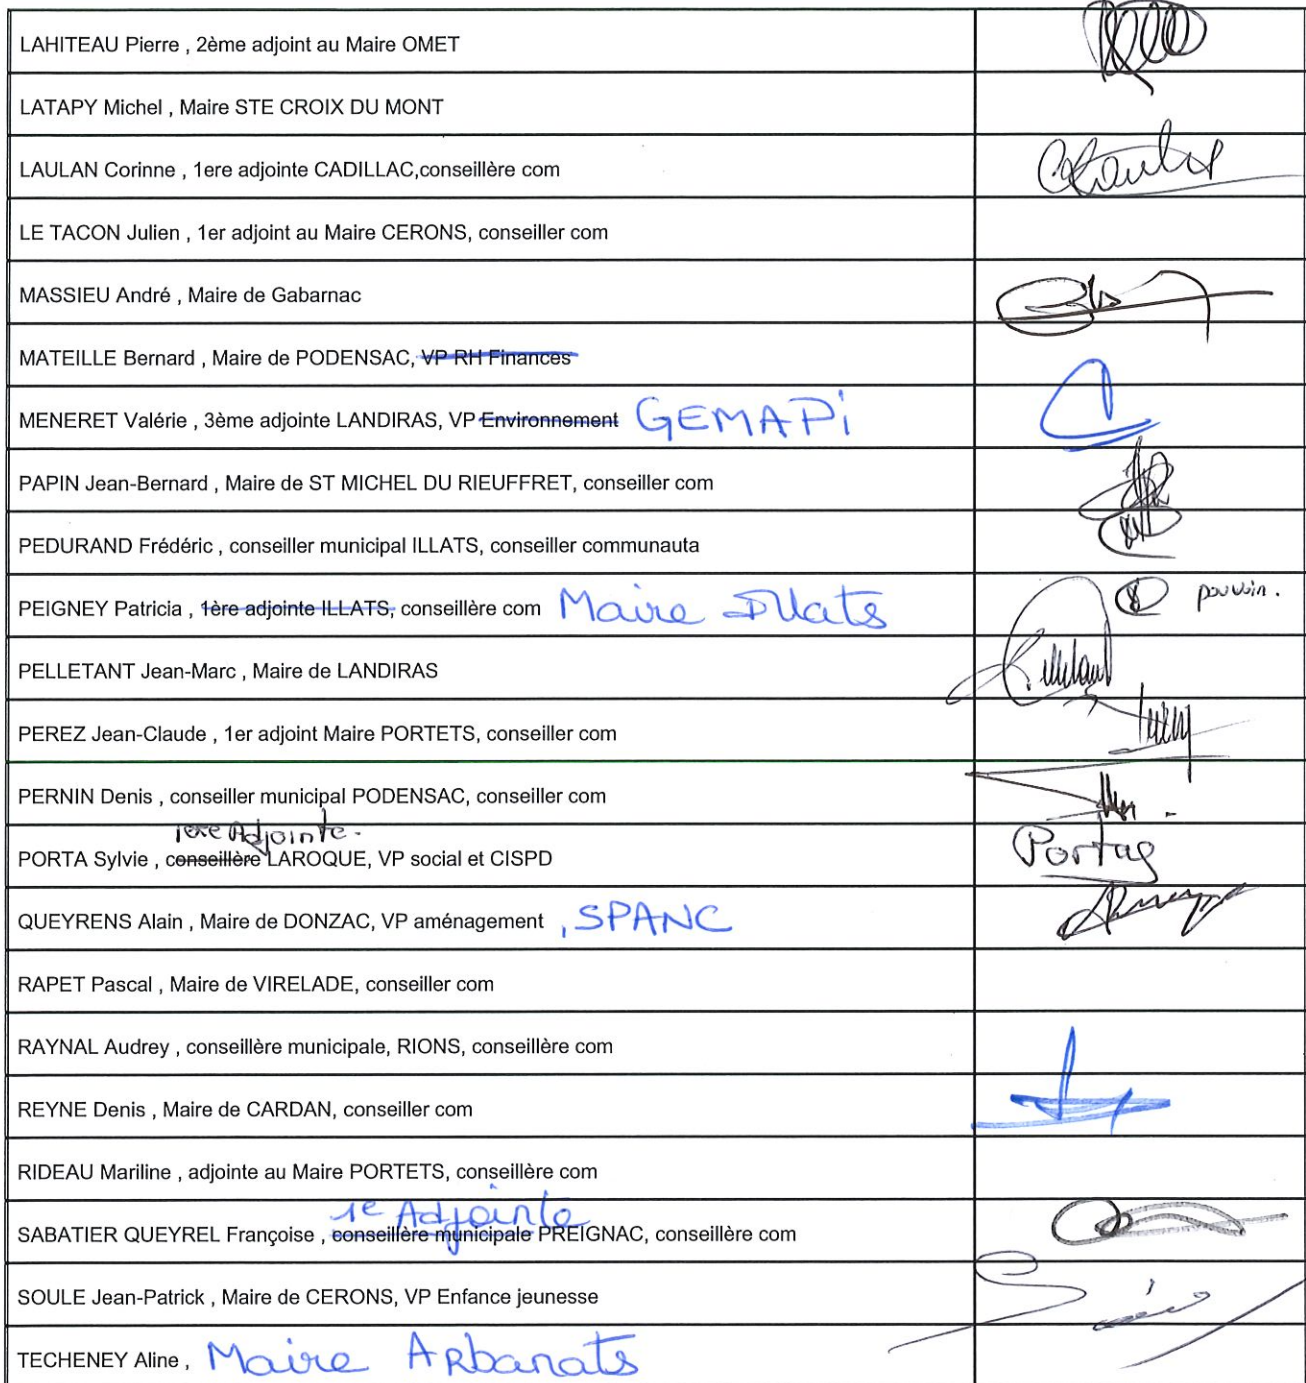 LAHITEAU Pierre , 2ème adjoint au Maire OMET
LATAPY Michel , Maire STE CROIX DU MONT
LAULAN Corinne , 1ere adjointe CADILLAC,conseillère com
LE TACON Julien , 1er adjoint au Maire CERONS, conseiller com
MASSIEU André , Maire de Gabarnac
MATEILLE Bernard , Maire de PODENSAC, VP RH Finances
MENERET Valérie , 3ème adjointe LANDIRAS, VP Environnement GEMAPi
PAPIN Jean-Bernard , Maire de ST MICHEL DU RIEUFFRET, conseiller com
PEDURAND Frédéric , conseiller municipal ILLATS, conseiller communauta
PEIGNEY Patricia , 1ère adjointe ILLATS, conseillère com Maire Illats pouvoir.
PELLETANT Jean-Marc , Maire de LANDIRAS
PEREZ Jean-Claude , 1er adjoint Maire PORTETS, conseiller com
PERNIN Denis , conseiller municipal PODENSAC, conseiller com
1ere Adjointe.
PORTA Sylvie , conseillère LAROQUE, VP social et CISPD
QUEYRENS Alain , Maire de DONZAC, VP aménagement , SPANC
RAPET Pascal , Maire de VIRELADE, conseiller com
RAYNAL Audrey , conseillère municipale, RIONS, conseillère com
REYNE Denis , Maire de CARDAN, conseiller com
RIDEAU Mariline , adjointe au Maire PORTETS, conseillère com
1e Adjointe
SABATIER QUEYREL Françoise , conseillère municipale PREIGNAC, conseillère com
SOULE Jean-Patrick , Maire de CERONS, VP Enfance jeunesse
TECHENEY Aline , Maire Arbanats